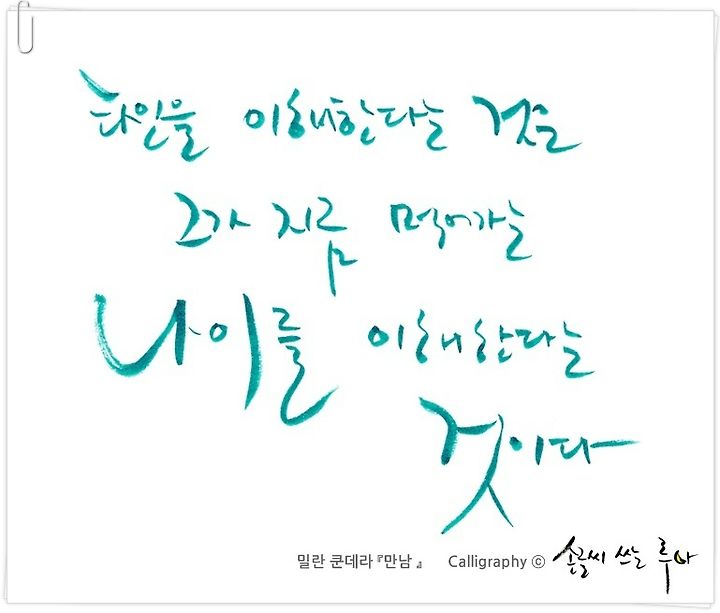 타인을 이해한다는 것은
그가 지금 먹어가는
나이를 이해한다는
것이다
밀란 쿤데라 『만남』 Calligraphy ⓒ 손글씨 쓰는 루아